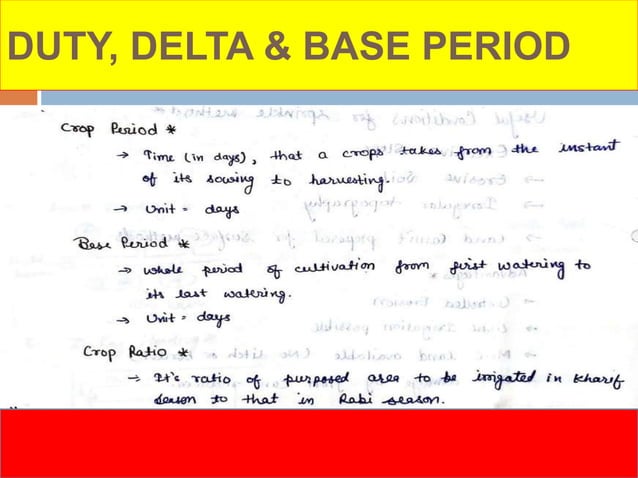 DUTY, DELTA & BASE PERIOD
Crop Period *
→ Time (in days), that a crops takes from the instant
of its sowing to harvesting.
→ Unit = days
Base Period *
→ whole period of cultivation from first watering to
its last watering.
→ Unit = days
Crop Ratio *
→ It's ratio of purposed area to be irrigated in Kharif
season to that in Rabi season.